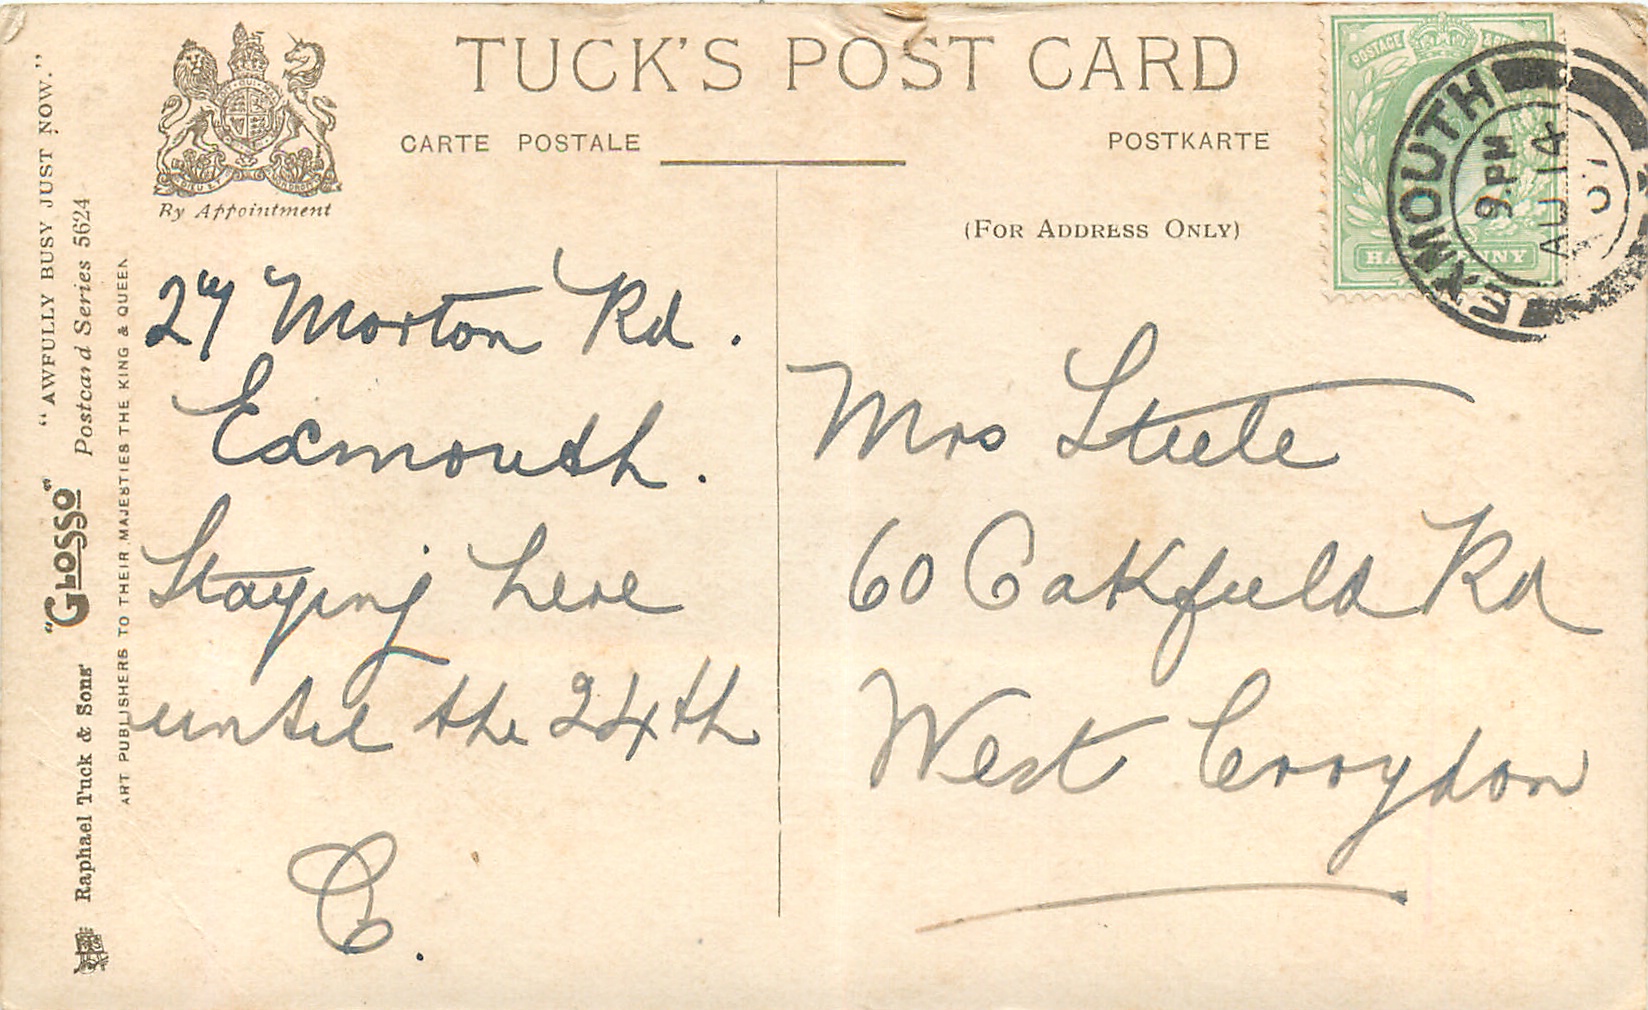 TUCK'S POST CARD
CARTE POSTALE
POSTKARTE
(FOR ADDRESS ONLY)
By Appointment
"AWFULLY BUSY JUST NOW."
"GLOSSO" Postcard Series 5624
Raphael Tuck & Sons'
ART PUBLISHERS TO THEIR MAJESTIES THE KING & QUEEN
POSTAGE
HALFPENNY
EXMOUTH
9. PM
AU 14
07
27 Morton Rd.
Exmouth.
Staying here
until the 24th
C.
Mrs Steele
60 Oakfield Rd
West Croydon